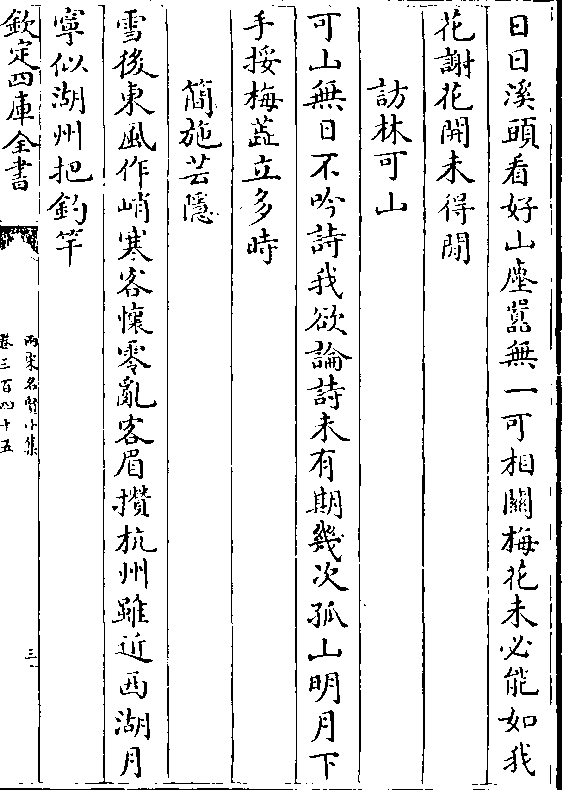 日日溪頭看好山塵囂無一可相關梅花未必能如我
花謝花開未得閒
訪林可山
可山無日不吟詩我欲論詩未有期幾次孤山明月下
手挼梅蕋立多時
簡施芸隱
雪後東風作峭寒客懷零亂客眉攢杭州雖近西湖月
寧似湖州把釣竿
欽定四庫全書
兩宋名賢小集
卷三百四十五
三